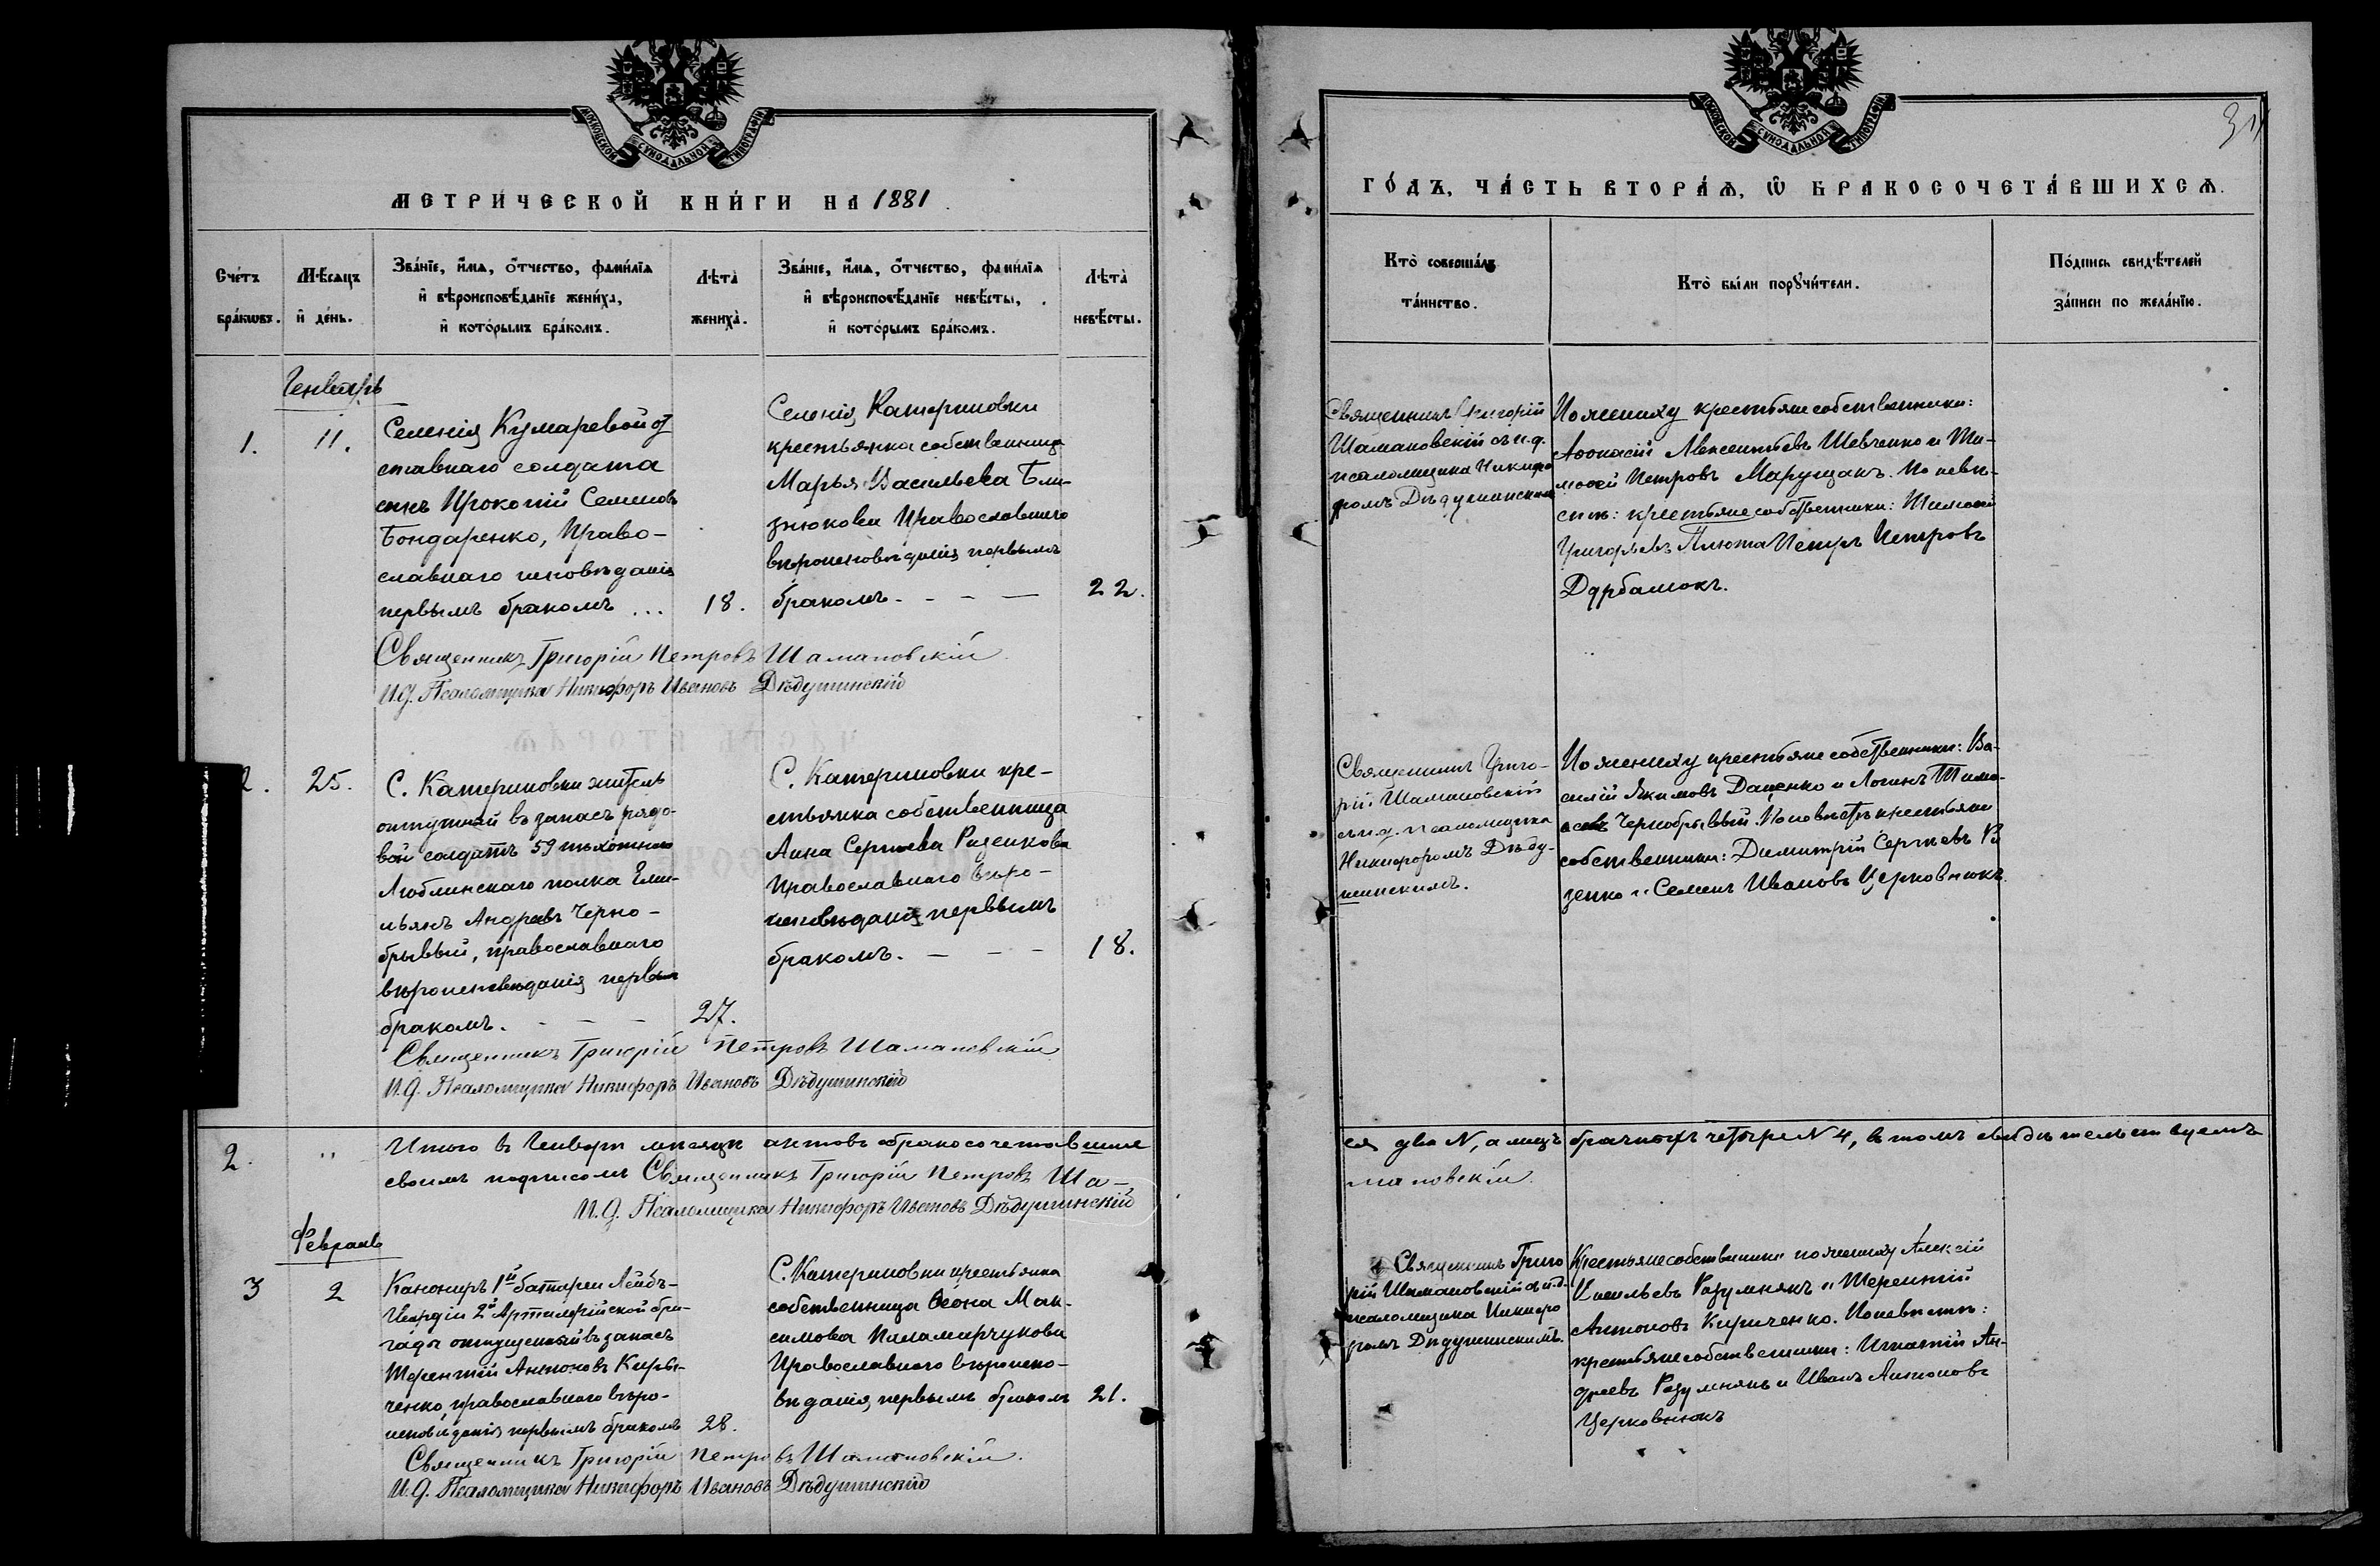 МОСКОВСКОЙ СѴНОДАЛЬНОЙ ТИПОГРАФІИ
МЕТРИ́ЧЕСКОЙ КНИ́ГИ НА 1881
Сче́тъ бра́ковъ.
Мѣ́сяцъ и де́нь.
Зва́нїе, и́мѧ, ѻ҆́тчество, фами́лїѧ
и҆ вѣроисповѣ́данїе жениха̀,
и҆ кото́рымъ бра́комъ.
Лѣта̀ жениха̀.
Зва́нїе, и́мѧ, ѻ҆́тчество, фами́лїѧ
и҆ вѣроисповѣ́данїе невѣ́сты,
и҆ кото́рымъ бра́комъ.
Лѣта̀ невѣ́сты.
Генварь
1.
11.
Селенія Кумаревой от
ставнаго солдата
сынъ Прокопій Семеновъ
Бондаренко, Право-
славнаго исповѣданія
первымъ бракомъ ...
18.
Селенія Катериновки
крестьянка собственница
Марья Васильева Бли-
знюкова Православнаго
вѣроисповѣданія первымъ
бракомъ. - - -
22.
Священникъ Григорій Петровъ Шамановскій
И.д. Псаломщика Никифоръ Ивановъ Дѣдушинскій
2.
25.
С. Катериновки житель
отпускной въ запасъ рядо-
вой солдатъ 59 пѣхотнаго
Люблинскаго полка Еми-
льянъ Андреевъ Черно-
брывый, православнаго
вѣроисповѣданія первым
бракомъ. - - -
27.
С. Катериновки кре-
стьянка собственница
Анна Сергіева Ризенкова
Православнаго вѣро-
исповѣданія первымъ
бракомъ. - - -
18.
Священникъ Григорій Петровъ Шамановскій
И.д. Псаломщика Никифоръ Ивановъ Дѣдушинскій
2.
"
Итого въ Генварѣ мѣсяцѣ актовъ бракосочетавшихся
своимъ подписомъ Священникъ Григорій Петровъ Ша-
И.д. Псаломщика Никифоръ Ивановъ Дѣдушинскій
Февраль
3
2
Канониръ 1й батареи Лейбъ-
Гвардіи 2й Артилерійской бри-
гады отпущенный въ запасъ
Терентій Антоновъ Кири-
ченко, православнаго вѣро-
исповѣданія первымъ бракомъ
28.
С. Катериновки крестьянка
собственница Ѳеона Мак-
симова Паламарчукова
Православнаго вѣроиспо-
вѣданія, первымъ бракомъ
21.
Священникъ Григорій Петровъ Шамановскій.
И.д. Псаломщика Никифоръ Ивановъ Дѣдушинскій
МОСКОВСКОЙ СѴНОДАЛЬНОЙ ТИПОГРАФІИ
31
ГО́ДЪ, ЧА́СТЬ ВТОРА́Ѧ, Ѡ҆ БРАКОСОЧЕТА́ВШИХСѦ.
Кто̀ соверша́лъ
та́инство.
Кто̀ бы́ли порꙋчи́тели.
По́дпись свидѣ́телей
за́писи по жела́нїю.
Священникъ Григорій
Шамановскій съ и.д.
псаломщика Никифо
ромъ Дѣдушинскимъ
По жениху крестьяне собственники:
Аѳонасій Авксентьевъ Шевченко и Ти-
моѳей Петровъ Марущакъ. По невѣ-
стѣ: крестьяне собственники: Тимоѳей
Григорьевъ Плюта Петръ Петровъ
Дербамокъ.
Священникъ Григо-
рій Шамановскій
съ и.д. псаломщика
Никифоромъ Дѣду-
шинскимъ.
По жениху крестьяне собственники: Ва-
силій Якимовъ Даценко и Логинъ Тимо-
ѳеевъ Чернобрывый. По невѣстѣ крестьяне
собственники: Димитрій Сергѣевъ Ри
зенко и Семенъ Ивановъ Церковнюкъ
ся два N, а лицъ брачныхъ четыре N 4, въ томъ свидѣтельствуемъ
мановскій.
Священникъ Григо
рій Шамановскій съ и.д.
псаломщика Никифо
ромъ Дѣдушинскимъ.
Крестьяне собственники по жениху Алексій
Васильевъ Разумнякъ и Терентій
Антоновъ Кириченко. По невѣстѣ:
крестьяне собственники: Игнатій Ан-
дреевъ Разумнякъ и Иванъ Антоновъ
Церковнюкъ